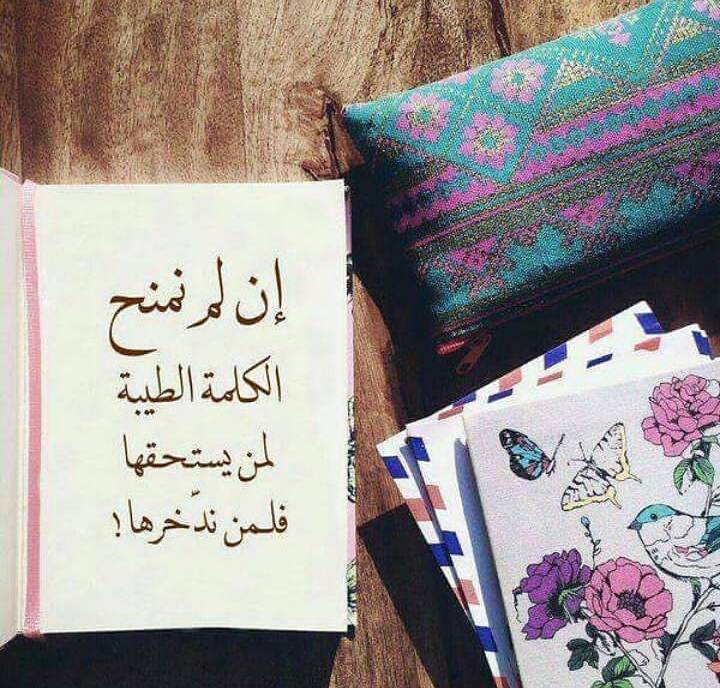 إن لم نمنح
الكلمة الطيبة
لمن يستحقها
فلمن ندّخرها !